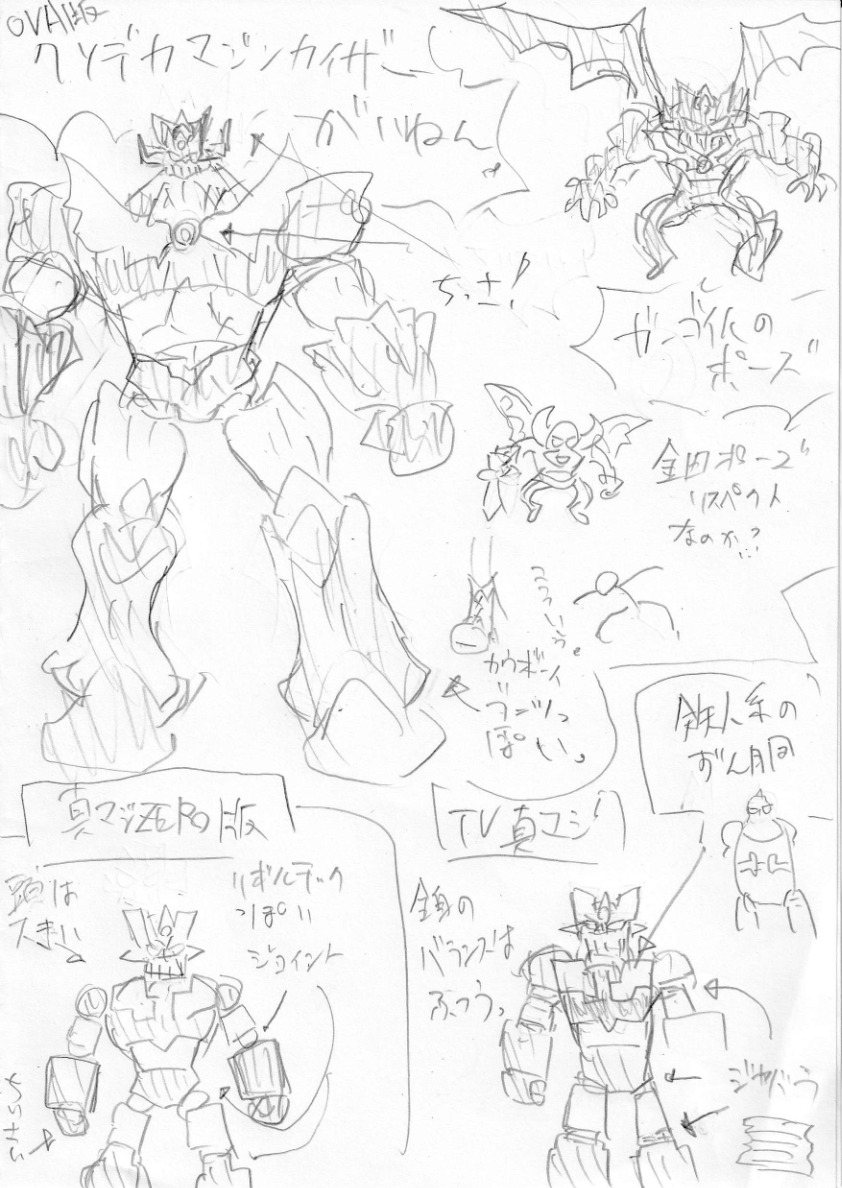 OVA版
クソデカマジンカイザー
がいねん
ちっさ!
ガーゴイルの
ポーズ
金田ポーズ
リスペクト
なのか?…
こういう。
カウボーイ
ブーツっ
ぽい。
鉄人系の
ずん胴
真マジZERO版
頭は
大きい
リボルテック
っぽい
ジョイント
TV真マジ
全身の
バランスは
ふつう。
ジャバラ